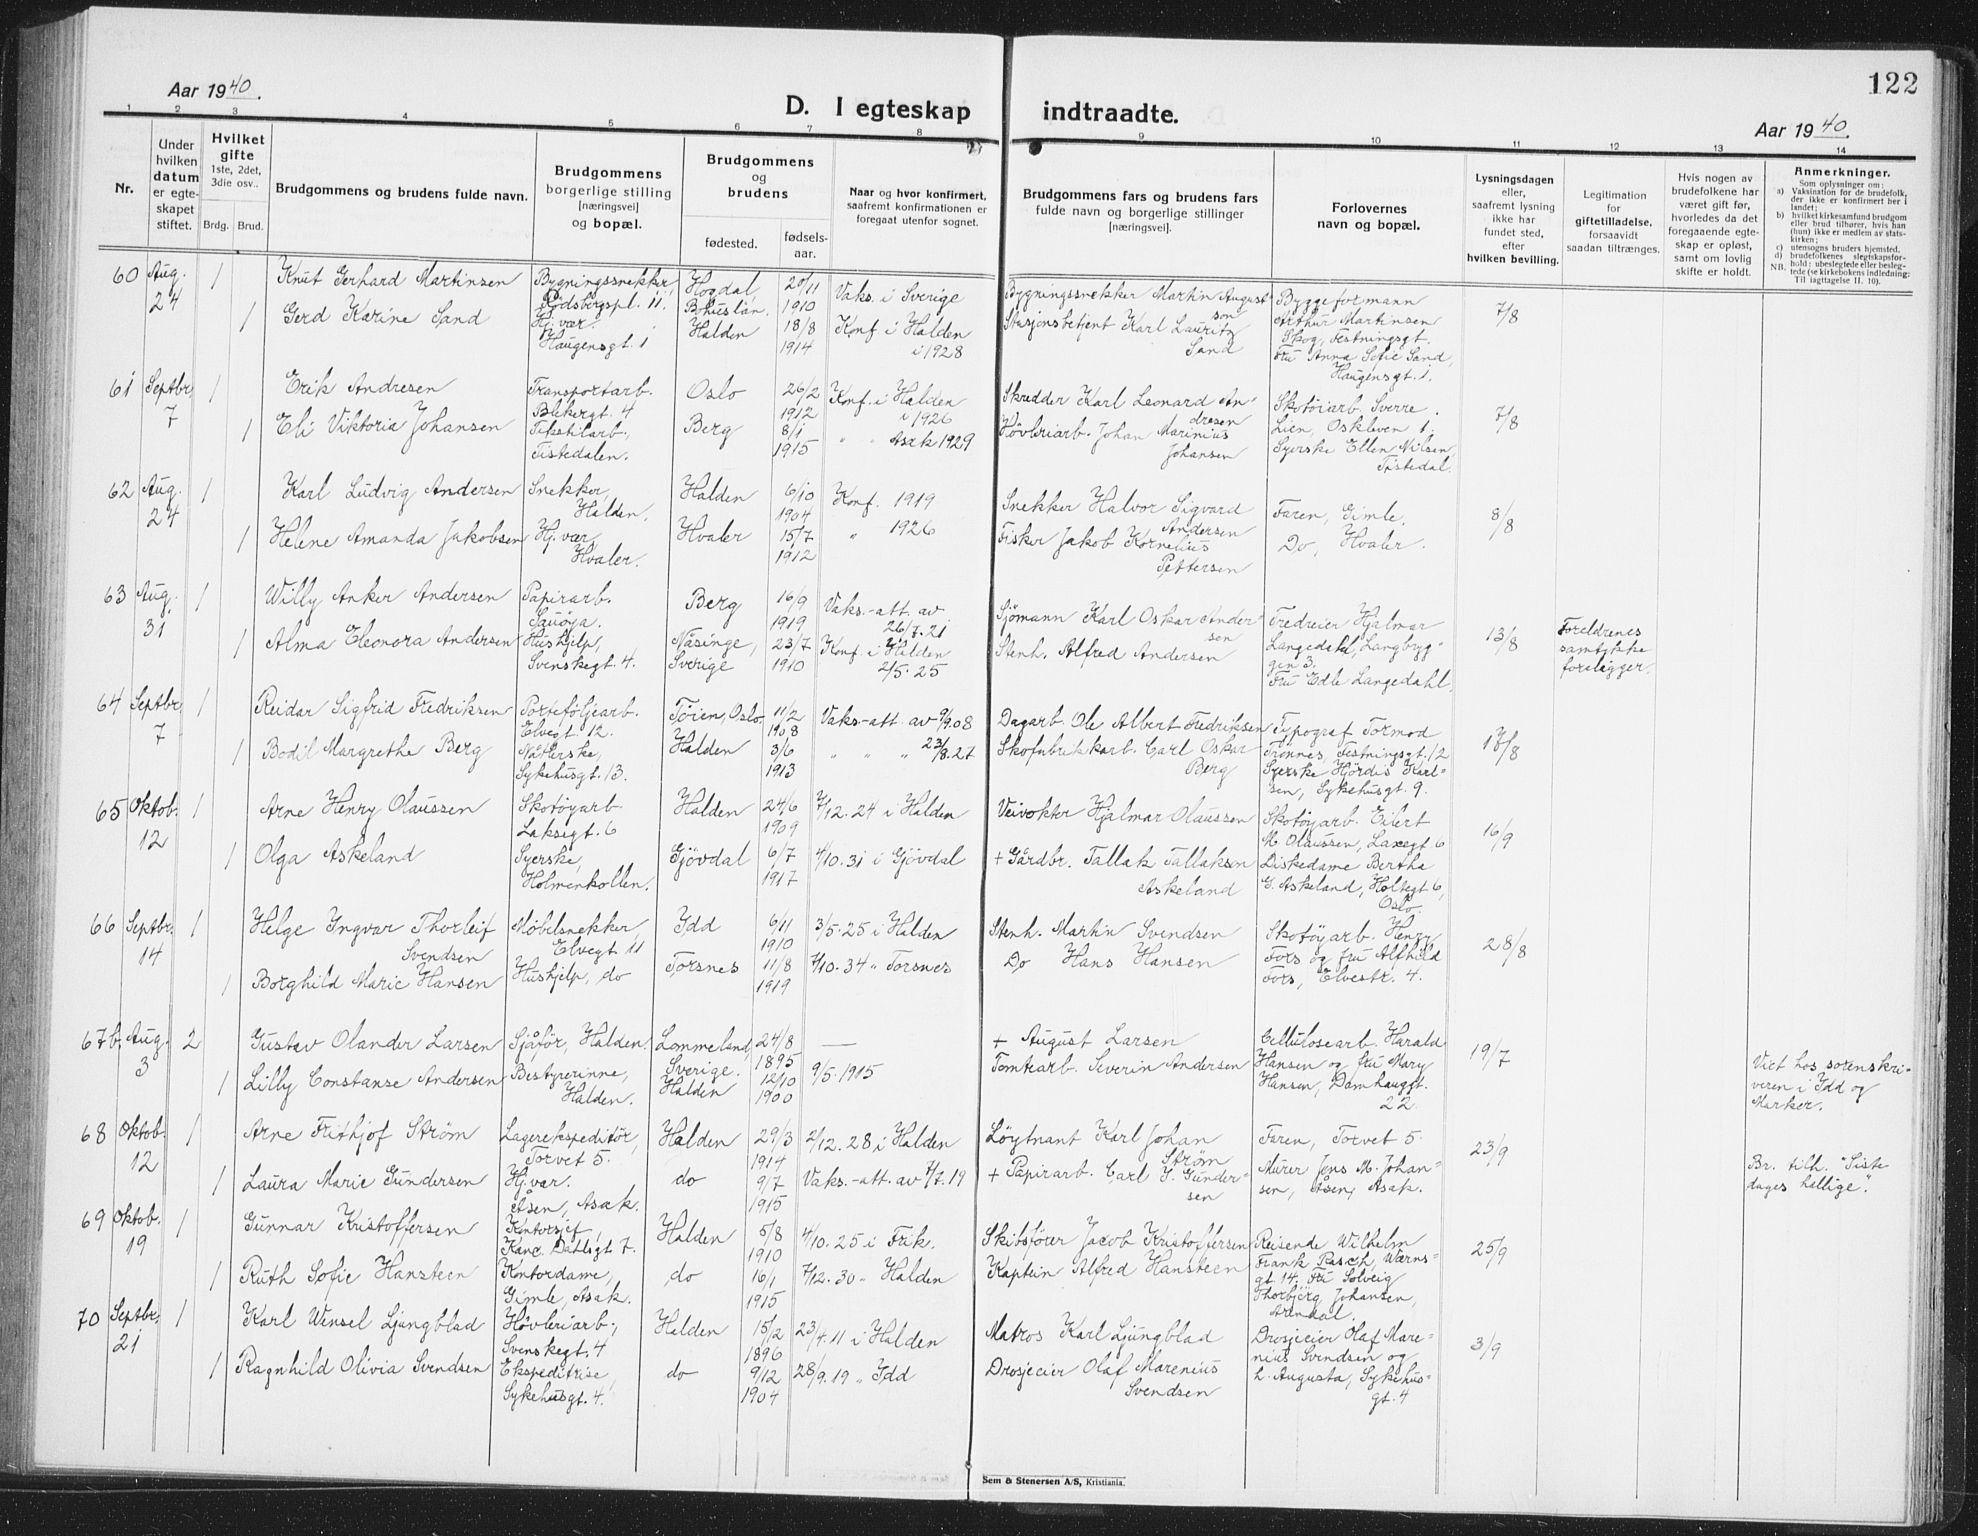 122
Aar 1940.
D. I egteskap indtraadte.
Aar 1940.
1 2 3 4 5 6 7 8 9 10 11 12 13 14
Nr.
Under hvilken datum er egteskapet stiftet.
Hvilket gifte 1ste, 2det, 3die osv..
Brdg. Brud.
Brudgommens og brudens fulde navn.
Brudgommens borgerlige stilling [næringsvei] og bopæl.
Brudgommens og brudens
fødested. fødselsaar.
Naar og hvor konfirmert, saafremt konfirmationen er foregaat utenfor sognet.
Brudgommens fars og brudens fars fulde navn og borgerlige stillinger [næringsvei].
Forlovernes navn og bopæl.
Lysningsdagen eller, saafremt lysning ikke har fundet sted, efter hvilken bevilling.
Legitimation for giftetilladelse, forsaavidt saadan tiltrænges.
Hvis nogen av brudefolkene har været gift før, hvorledes da det foregaaende egteskap er opløst, samt om lovlig skifte er holdt.
Anmerkninger.
Som oplysninger om:
a) Vaksination for de brudefolk, der ikke er konfirmert her i landet;
b) hvilket kirkesamfund brudgom eller brud tilhører, hvis han (hun) ikke er medlem av statskirken;
c) utensogns bruders hjemsted.
d) brudefolkenes slegtskapsforhold: ubeslegtede eller beslegtede (se kirkebokens indledning: Til iagttagelse II. 10).
NB.
60 Aug. 24 1 Knut Gerhard Martinsen Bygningssnekker Rødsbergspl. 11 Hogdal Bohuslän. 20/11 1910 Vaks. i Sverige Bygningssnekker Martin August son Byggeformann Arthur Martinsen Skog, Festningsgt. 7/8
1 Gerd Karine Sand Hj.vær. Haugensgt. 1 Halden 18/8 1914 Konf. i Halden i 1928 Stasjonsbetjent Karl Lauritz Sand Fru Anna Sofie Sand, Haugensgt. 1.
61 Septbr. 7 1 Erik Andresen Transportarb. Blekergt. 4 Oslo 26/2 1912 Konf. i Halden i 1926 Skredder Karl Leonard Andresen Skotøiarb. Sverre Lien, Oskleven 1. 7/8
1 Eli Viktoria Johansen Tekstilarb. Tistedalen. Berg 8/1 1915 " " Asak 1929 Høvleriarb. Johan Marinius Johansen Syerske Ellen Nilsen, Tistedal.
62 Aug. 24 1 Karl Ludvig Andersen Snekker, Halden. Halden 6/10 1904 Konf. 1919 Snekker Halvor Sigvard Andersen Faren, Gimle. 8/8
1 Helene Amanda Jakobsen Hj.vær, Hvaler. Hvaler 15/7 1912 " 1926 Fisker Jakob Kornelius Pettersen Do, Hvaler.
63 Aug. 31 1 Willy Anker Andersen Papirarb. Sauøya. Berg 16/9 1919 Vaks.-att. av 26/7.21 Sjømann Karl Oskar Andersen Tredreier Hjalmar Langedahl, Langbryggen 3. 13/8 Foreldrenes samtykke foreligger.
1 Alma Eleonora Andersen Hushjelp, Svenskegt. 4. Näsinge, Sverige 23/7 1910 Konf. i Halden 2/5.25 Stenh. Alfred Andersen Fru Edle Langedahl.
64 Septbr. 7 1 Reidar Sigfrid Fredriksen Porteføljearb. Elvegt. 12. Tøien, Oslo 11/2 1908 Vaks.-att. av 9/9.08 Dagarb. Ole Albert Fredriksen Typograf Tormod Trønnes, Festningsgt. 12
1 Bodil Margrethe Berg Nåtlerske, Sykehusgt. 13. Halden 3/6 1913 " " " 23/8.27 Skofabrikkarb. Carl Oskar Berg Syerske Hjørdis Karlsen, Sykehusgt. 9.
65 Oktob. 12 1 Arne Henry Olaussen Skotøyarb Laksegt. 6 Halden 24/6 1909 7/12.24 i Halden Veivokter Hjalmar Olaussen Skotøyarb. Eilert M Olaussen, Laxegt 6 16/9
1 Olga Askeland Syerske, Holmenkollen. Gjövdal 6/7 1917 4/10.31 i Gjövdal + Gårdbr. Tallak Tallaksen Askeland Diskedame Bertha G. Askeland, Holtegt 6, Oslo.
66 Septbr. 14 1 Helge Ingvar Thorleif Svendsen Møbelsnekker, Elvegt 11 Idd 6/11 1910 3/5.25 i Halden Stenh. Martin Svendsen Skotøyarb. Henry Fors og fru Alfhild Fors, Elvestr. 4. 28/8
1 Borghild Marie Hansen Hushjelp, do Torsnes 11/8 1919 7/10.34 " Torsnes Do Hans Hansen
67b. Aug. 3 2 Gustav Olander Larsen Sjåfør, Halden. Lommeland, Sverige. 24/8 1895 — + August Larsen Cellulosearb. Harald Hansen og fru Mary Hansen, Damhauggt. 22 19/7 Viet hos sorenskriveren i Idd og Marker.
1 Lilly Constanse Andersen Bestyrerinne, Halden. Halden 12/10 1900 9/5.1915 Tomtearb. Severin Andersen
68 Oktob. 12 1 Arne Frithjof Strøm Lagerekspeditør, Torvet 5. Halden 29/3 1914 2/12.28 i Halden Løytnant Karl Johan Strøm Faren, Torvet 5. 23/9
1 Laura Marie Gundersen Hj.vær. Åsen, Asak. do 9/7 1915 Vaks.-att. av 7/7.19 + Papirarb. Carl J. Gundersen Murer Jens M. Johansen, Åsen, Asak. Br. tilh. "Siste dages hellige".
69 Oktob. 19 1 Gunnar Kristoffersen Kontorsjef, Kanc. Dahlsgt 7. Halden 5/8 1910 4/10.25 i Frik. Skibsfører Jacob Kristoffersen Reisende Wilhelm Frank Rasch, Wærnsgt. 14. 25/9
1 Ruth Sofie Hansteen Kontordame, Gimle, Asak. do 16/1 1915 7/12.30 " Halden Kaptein Alfred Hansteen Fru Solveig Thorbjørg Johansen, Arendal.
70 Septbr. 21 1 Karl Winsel Ljungblad Høvleriarb., Svenskegt. 4 Halden 15/2 1896 23/4.11 i Halden Matros Karl Ljungblad Drosjeeier Olaf Marenius Svendsen og L. Augusta, Sykehusgt. 4 3/9
1 Ragnhild Olivia Svendsen Ekspeditrise, Sykehusgt. 4. do 9/12 1904 28/9.19 " Idd Drosjeeier Olaf Marenius Svendsen
Sem & Stenersen A/S, Kristiania.